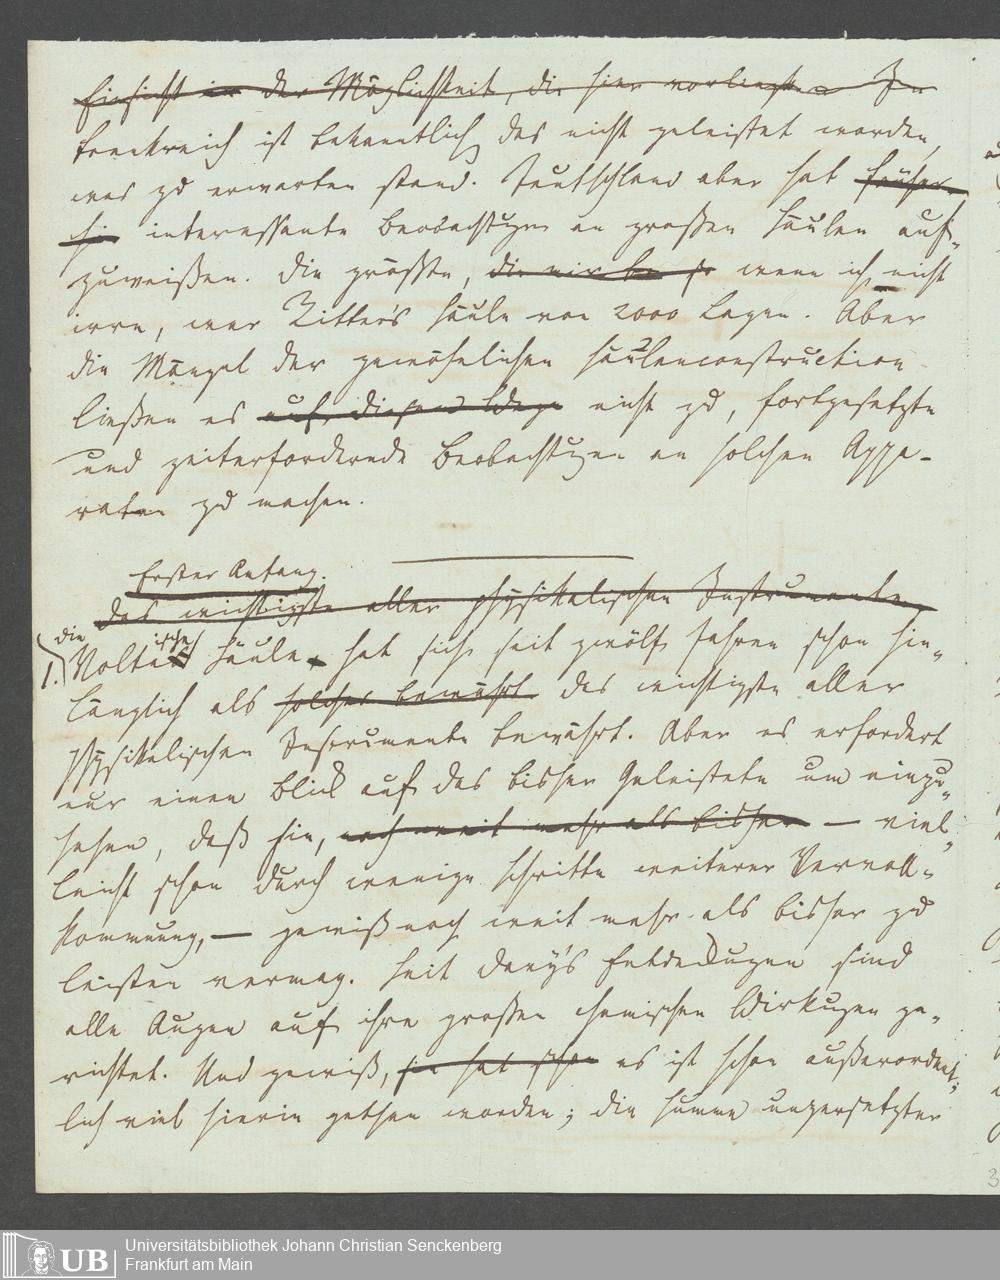 Einsicht in der Möglichkeit, die hier vorliegt. In
Frankreich ist bekanntlich das nicht geleistet worden,
was zu erwarten stand. Teutschland aber hat früher
hin interessante Beobachtungen an großen Säulen auf-
zuweißen. Die größte, die wir wenn ich nicht
irre, war Ritter's Säule von 2000 Lagen. Aber
die Mängel der gewöhnlichen Säulenconstruction
ließen es auf diesem Wege nicht zu, fortgesetzte
und zeiterfordernde Beobachtungen an solchen Appa-
raten zu machen.
Erster Anfang.
Das wichtigste aller physikalischen Instrumente,
1.) die Voltaische Säule hat sich seit zwölf Jahren schon hin-
länglich als solches bewährt das wichtigste aller
physikalischen Instrumente bewährt. Aber es erfordert
nur einen Blick auf das bisher Geleistete um einzu-
sehen, daß sie, noch weit mehr als bisher — viel-
leicht schon durch wenige Schritte weiterer Vervoll-
kommnung, — gewiß noch weit mehr als bisher zu
leisten vermag. Seit Davy's Entdeckungen sind
alle Augen auf ihre großen chemischen Wirkungen ge-
richtet. Und gewiß, sie hat schon es ist schon außerordent-
lich viel hierin gethan worden; die Summe unzersetzter
Universitätsbibliothek Johann Christian Senckenberg
Frankfurt am Main
UB